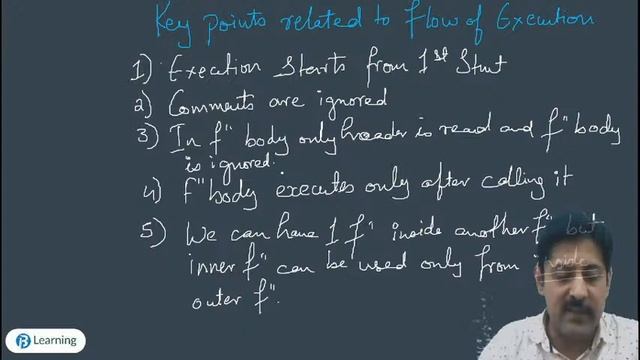 Key points related to flow of Execution
1) Execution starts from 1st Stmt
2) Comments are ignored
3) In fⁿ body only header is read and fⁿ body
is ignored.
4) fⁿ body executes only after calling it
5) We can have 1 fⁿ inside another fⁿ but
inner fⁿ can be used only from inside
outer fⁿ.
Learning